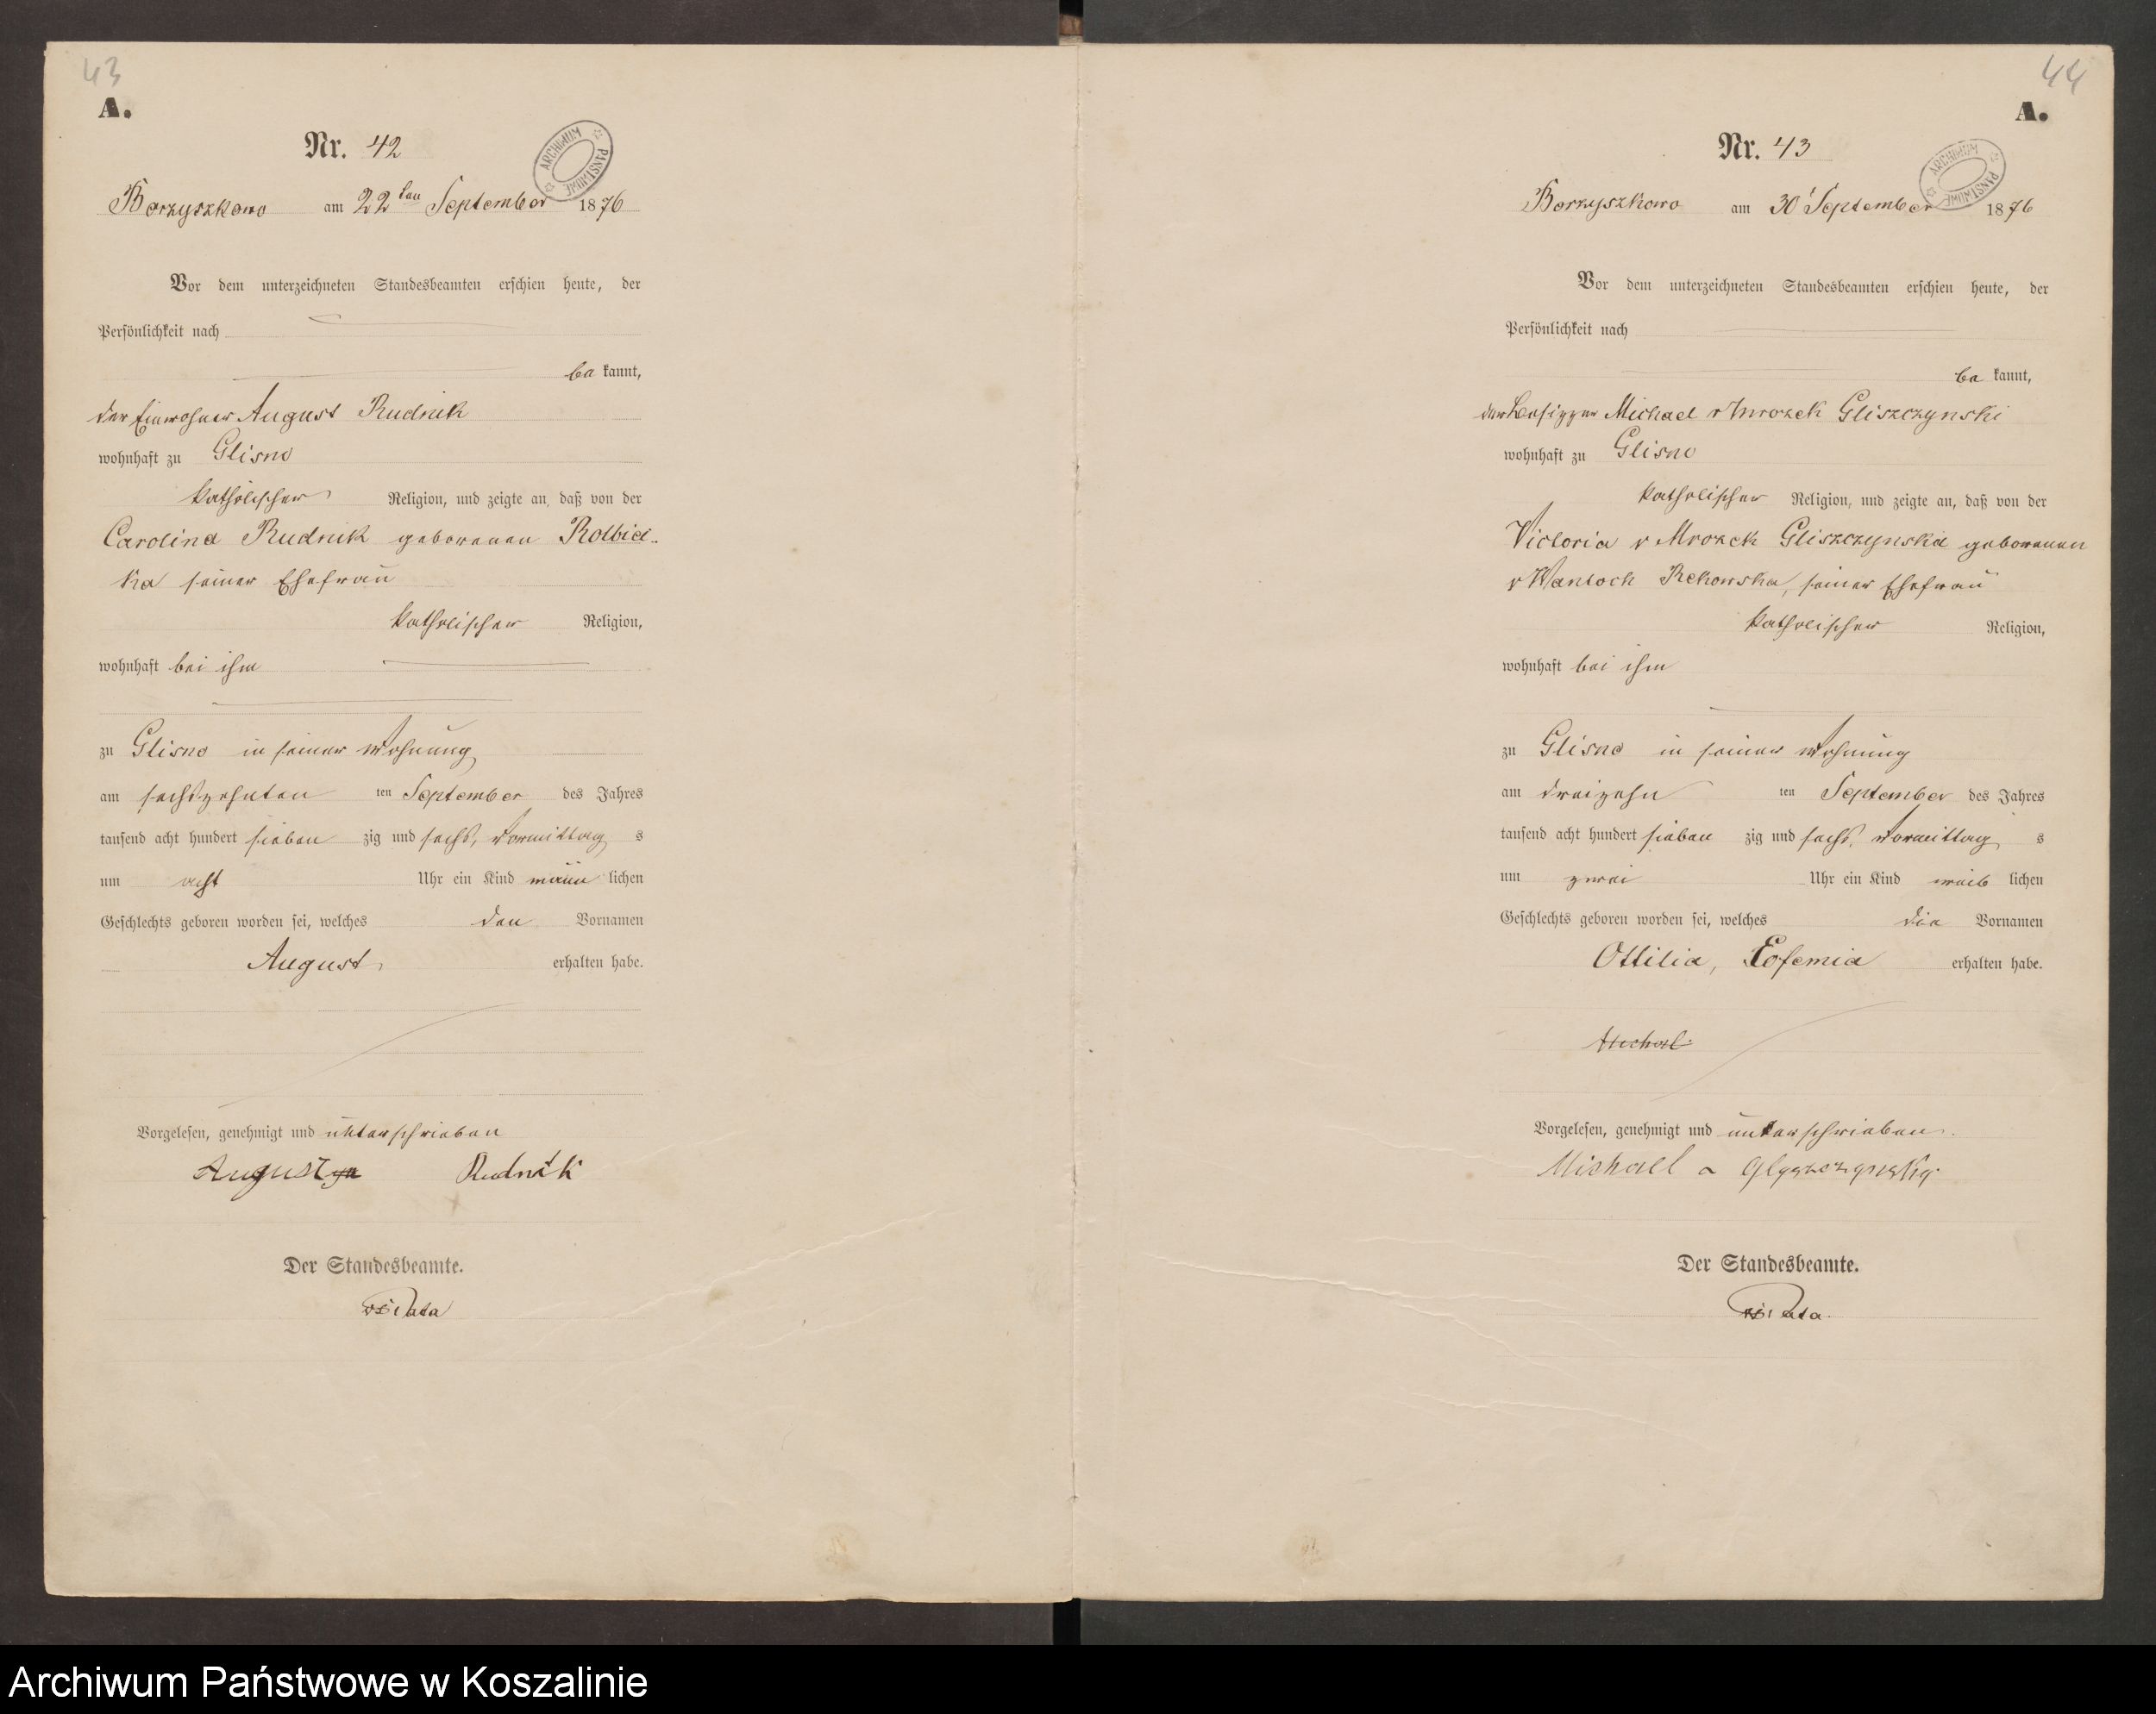 43
A.
Nr. 42
ARCHIWUM PAŃSTWOWE
Borzyszkowo am 22ten September 1876
Vor dem unterzeichneten Standesbeamten erschien heute, der
Persönlichkeit nach
be kannt,
der Einwohner August Rudnik
wohnhaft zu Glisno
katholischer Religion, und zeigte an, daß von der
Carolina Rudnik geborenen Rolbiec-
ka seiner Ehefrau
katholischer Religion,
wohnhaft bei ihm
zu Glisno in seiner Wohnung
am sechszehnten ten September des Jahres
tausend acht hundert sieben zig und sechs, Vormittag s
um acht Uhr ein Kind männ lichen
Geschlechts geboren worden sei, welches den Vornamen
August erhalten habe.
Vorgelesen, genehmigt und unterschrieben
August Rudnik
Der Standesbeamte.
44
A.
Nr. 43
ARCHIWUM PAŃSTWOWE
Borzyszkowo am 30 September 1876
Vor dem unterzeichneten Standesbeamten erschien heute, der
Persönlichkeit nach
be kannt,
der Besitzer Michael v Mrozek Gliszczynski
wohnhaft zu Glisno
katholischer Religion, und zeigte an, daß von der
Victoria v Mrozek Gliszczynska geborenen
v Wantoch Rekowska, seiner Ehefrau
katholischer Religion,
wohnhaft bei ihm
zu Glisno in seiner Wohnung
am dreizehn ten September des Jahres
tausend acht hundert sieben zig und sechs, Vormittag s
um zwei Uhr ein Kind weib lichen
Geschlechts geboren worden sei, welches die Vornamen
Ottilia, Eofemia erhalten habe.
Michal
Vorgelesen, genehmigt und unterschrieben.
Michael
Der Standesbeamte.
Archiwum Państwowe w Koszalinie